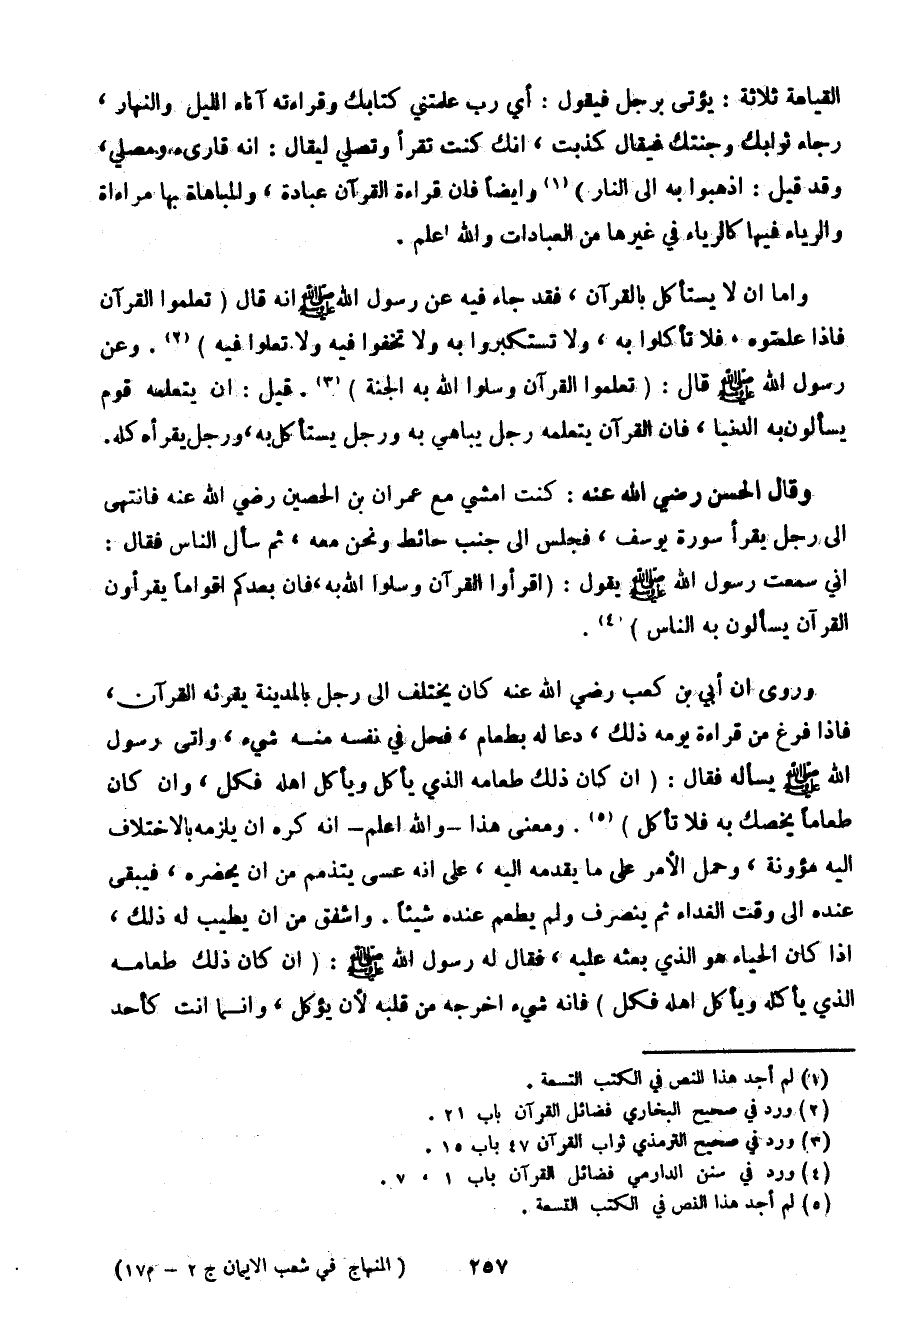 القيامة ثلاثة : يؤتى برجل فيقول : أي رب علمتني كتابك وقراءته آناء الليل والنهار ،
رجاء ثوابك وجنتك فيقال كذبت ، انك كنت تقرأ وتصلي ليقال : انه قارىء ومصلي ،
وقد قيل : اذهبوا به الى النار ) (١) وايضاً فان قراءة القرآن عبادة ، وللمباهاة بها مراءاة
والرياء فيها كالرياء في غيرها من العبادات والله اعلم .
واما ان لا يستأكل بالقرآن ، فقد جاء فيه عن رسول الله ﷺ انه قال ( تعلموا القرآن
فاذا علمتوه ، فلا تأكلوا به ، ولا تستكبروا به ولا تخفوا فيه ولا تعلوا فيه ) (٢) . وعن
رسول الله ﷺ قال : ( تعلموا القرآن وسلوا الله به الجنة ) (٣) . قيل : ان يتعلمه قوم
يسألون به الدنيا ، فان القرآن يتعلمه رجل يباهي به ورجل يستأكل به ، ورجل يقرأه كله .
وقال الحسن رضي الله عنه : كنت امشي مع عمران بن الحصين رضي الله عنه فانتهى
الى رجل يقرأ سورة يوسف ، فجلس الى جنب حائط ونحن معه ، ثم سأل الناس فقال :
اني سمعت رسول الله ﷺ يقول : (اقرأوا القرآن وسلوا الله به ، فان بعدكم اقواماً يقرأون
القرآن يسألون به الناس ) (٤) .
وروى ان أبي بن كعب رضي الله عنه كان يختلف الى رجل بالمدينة يقرئه القرآن ،
فاذا فرغ من قراءة يومه ذلك ، دعا له بطعام ، فحل في نفسه منه شيء ، واتى رسول
الله ﷺ يسأله فقال : ( ان كان ذلك طعامه الذي يأكل ويأكل اهله فكل ، وان كان
طعاماً يخصك به فلا تأكل ) (٥) . ومعنى هذا –والله اعلم– انه كره ان يلزمه بالاختلاف
اليه مؤونة ، وحمل الأمر على ما يقدمه اليه ، على انه عسى يتذمم من ان يحضره ، فيبقى
عنده الى وقت الغداء ثم ينصرف ولم يطعم عنده شيئاً . واشفق من ان يطيب له ذلك ،
اذا كان الحياء هو الذي بعثه عليه ، فقال له رسول الله ﷺ : ( ان كان ذلك طعامه
الذي يأكله ويأكل اهله فكل ) فانه شيء اخرجه من قلبه لأن يؤكل ، وانما انت كأحد
(١) لم أجد هذا النص في الكتب التسعة .
(٢) ورد في صحيح البخاري فضائل القرآن باب ٢١ .
(٣) ورد في صحيح الترمذي ثواب القرآن ٤٧ باب ١٥ .
(٤) ورد في سنن الدارمي فضائل القرآن باب ١ ، ٧ .
(٥) لم أجد هذا النص في الكتب التسعة .
٢٥٧ ( المنهاج في شعب الايمان ج ٢ – م١٧)